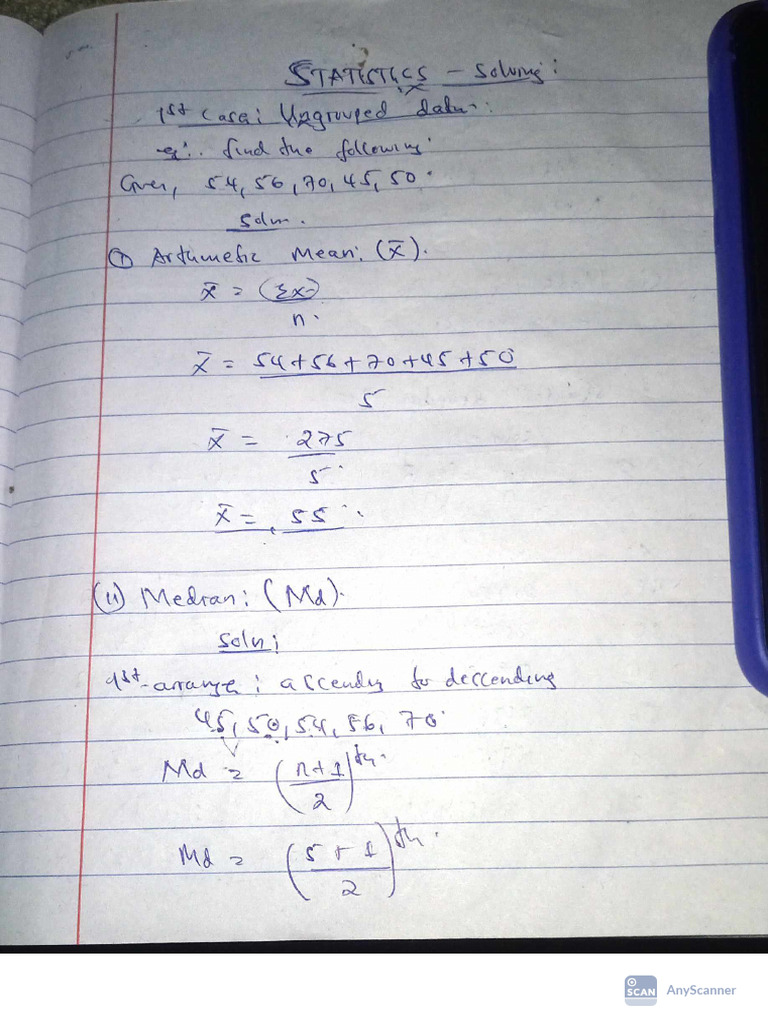 STATISTICS - Solving:
1st Case: Ungrouped data:
eg:. find the following:
Given, 54, 56, 70, 45, 50.
Soln.
(i) Arithmetic Mean: (x̄).
x̄ = (Σx)
n.
x̄ = 54+56+70+45+50
5
x̄ = 275
5
x̄ = 55
(ii) Median: (Md).
Soln:
1st-arrange: ascending to descending
45, 50, 54, 56, 70
Md = (n+1 / 2)th.
Md = (5+1 / 2)th.
SCAN AnyScanner